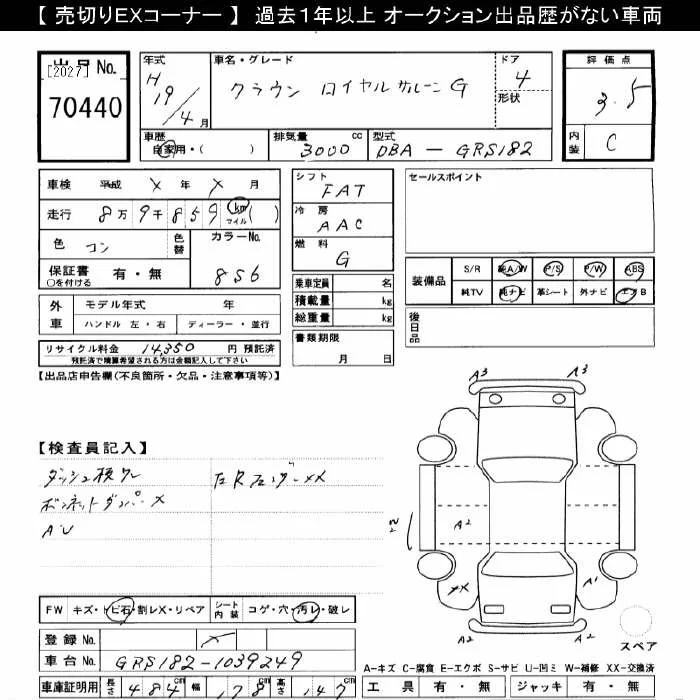 【 売切りEXコーナー 】 過去1年以上 オークション出品歴がない車両
出品 No.
[2027]
70440
年式
H 19/4月
車名・グレード
クラウン ロイヤルサルーン G
ドア
4
形状
評価点
3.5
内装
C
車歴
自家用・( )
排気量
3000 cc
型式
DBA - GRS182
車検 平成 X 年 X 月
走行 8万9千859 km マイル ( )
色 コン
色替
カラーNo.
856
保証書
○を付ける
有・無
シフト
FAT
冷房
AAC
燃料
G
乗車定員 名
積載量 kg
総重量 kg
書類期限
月 日
セールスポイント
装備品
S/R 純A/W P/S P/W ABS
純TV 純ナビ 革シート 外ナビ エアB
後日品
外車
モデル年式 年
ハンドル 左・右 ディーラー・並行
リサイクル料金 14,350 円 預託済
預託済で積算希望される方は金額記入して下さい
【出品店申告欄(不良箇所・欠品・注意事項等)】
【検査員記入】
ボンネットダンパーX
AU
A3 A3
A2
A2
A1
XX
A2 A2
スペア
FW キズ・トビ石・割レX・リペア
シート内装
コゲ・穴・汚レ・破レ
登録 No.
車台 No. GRS182-1039249
車庫証明用 長さ 484cm 幅 178cm 高さ 147cm
A-キズ C-腐食 E-エクボ S-サビ U-凹ミ W-補修 XX-交換済
工具 有・無 ジャッキ 有・無